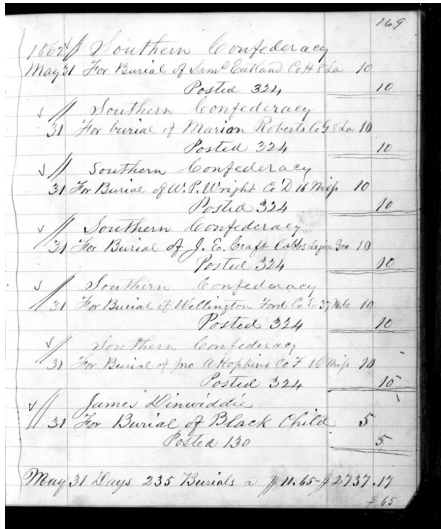 169
1862 Southern Confederacy
May 31 For Burial of Saml Eatland Co H 8 La 10
Posted 324 10
Southern Confederacy
31 For burial of Marion Roberts Co G 8 La 10
Posted 324 10
Southern Confederacy
31 For Burial of W. P. Wright Co D 16 Miss 10
Posted 324 10
Southern Confederacy
31 For Burial of J. E. Craft Legion 10
Posted 324 10
Southern Confederacy
31 For Burial of Wellington Ford Co 37 10
Posted 324 10
Southern Confederacy
31 For Burial of Jno A Hopkins Co F 16 Miss 10
Posted 324 10
James Dinwiddie
31 For Burial of Black Child 5
Posted 130 5
May 31 Days 235 Burials a $11.65 - $2737.17